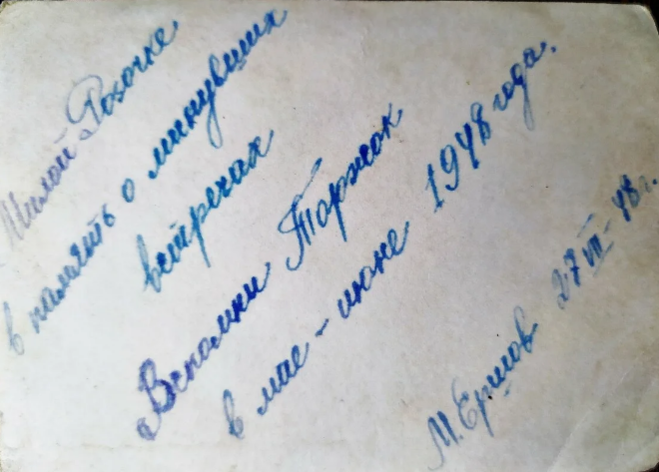 Милой Розочке
в память о минувших
встречах
Вспомни Торжок
в мае - июне 1948 года.
М. Ершов 27 VII - 48 г.